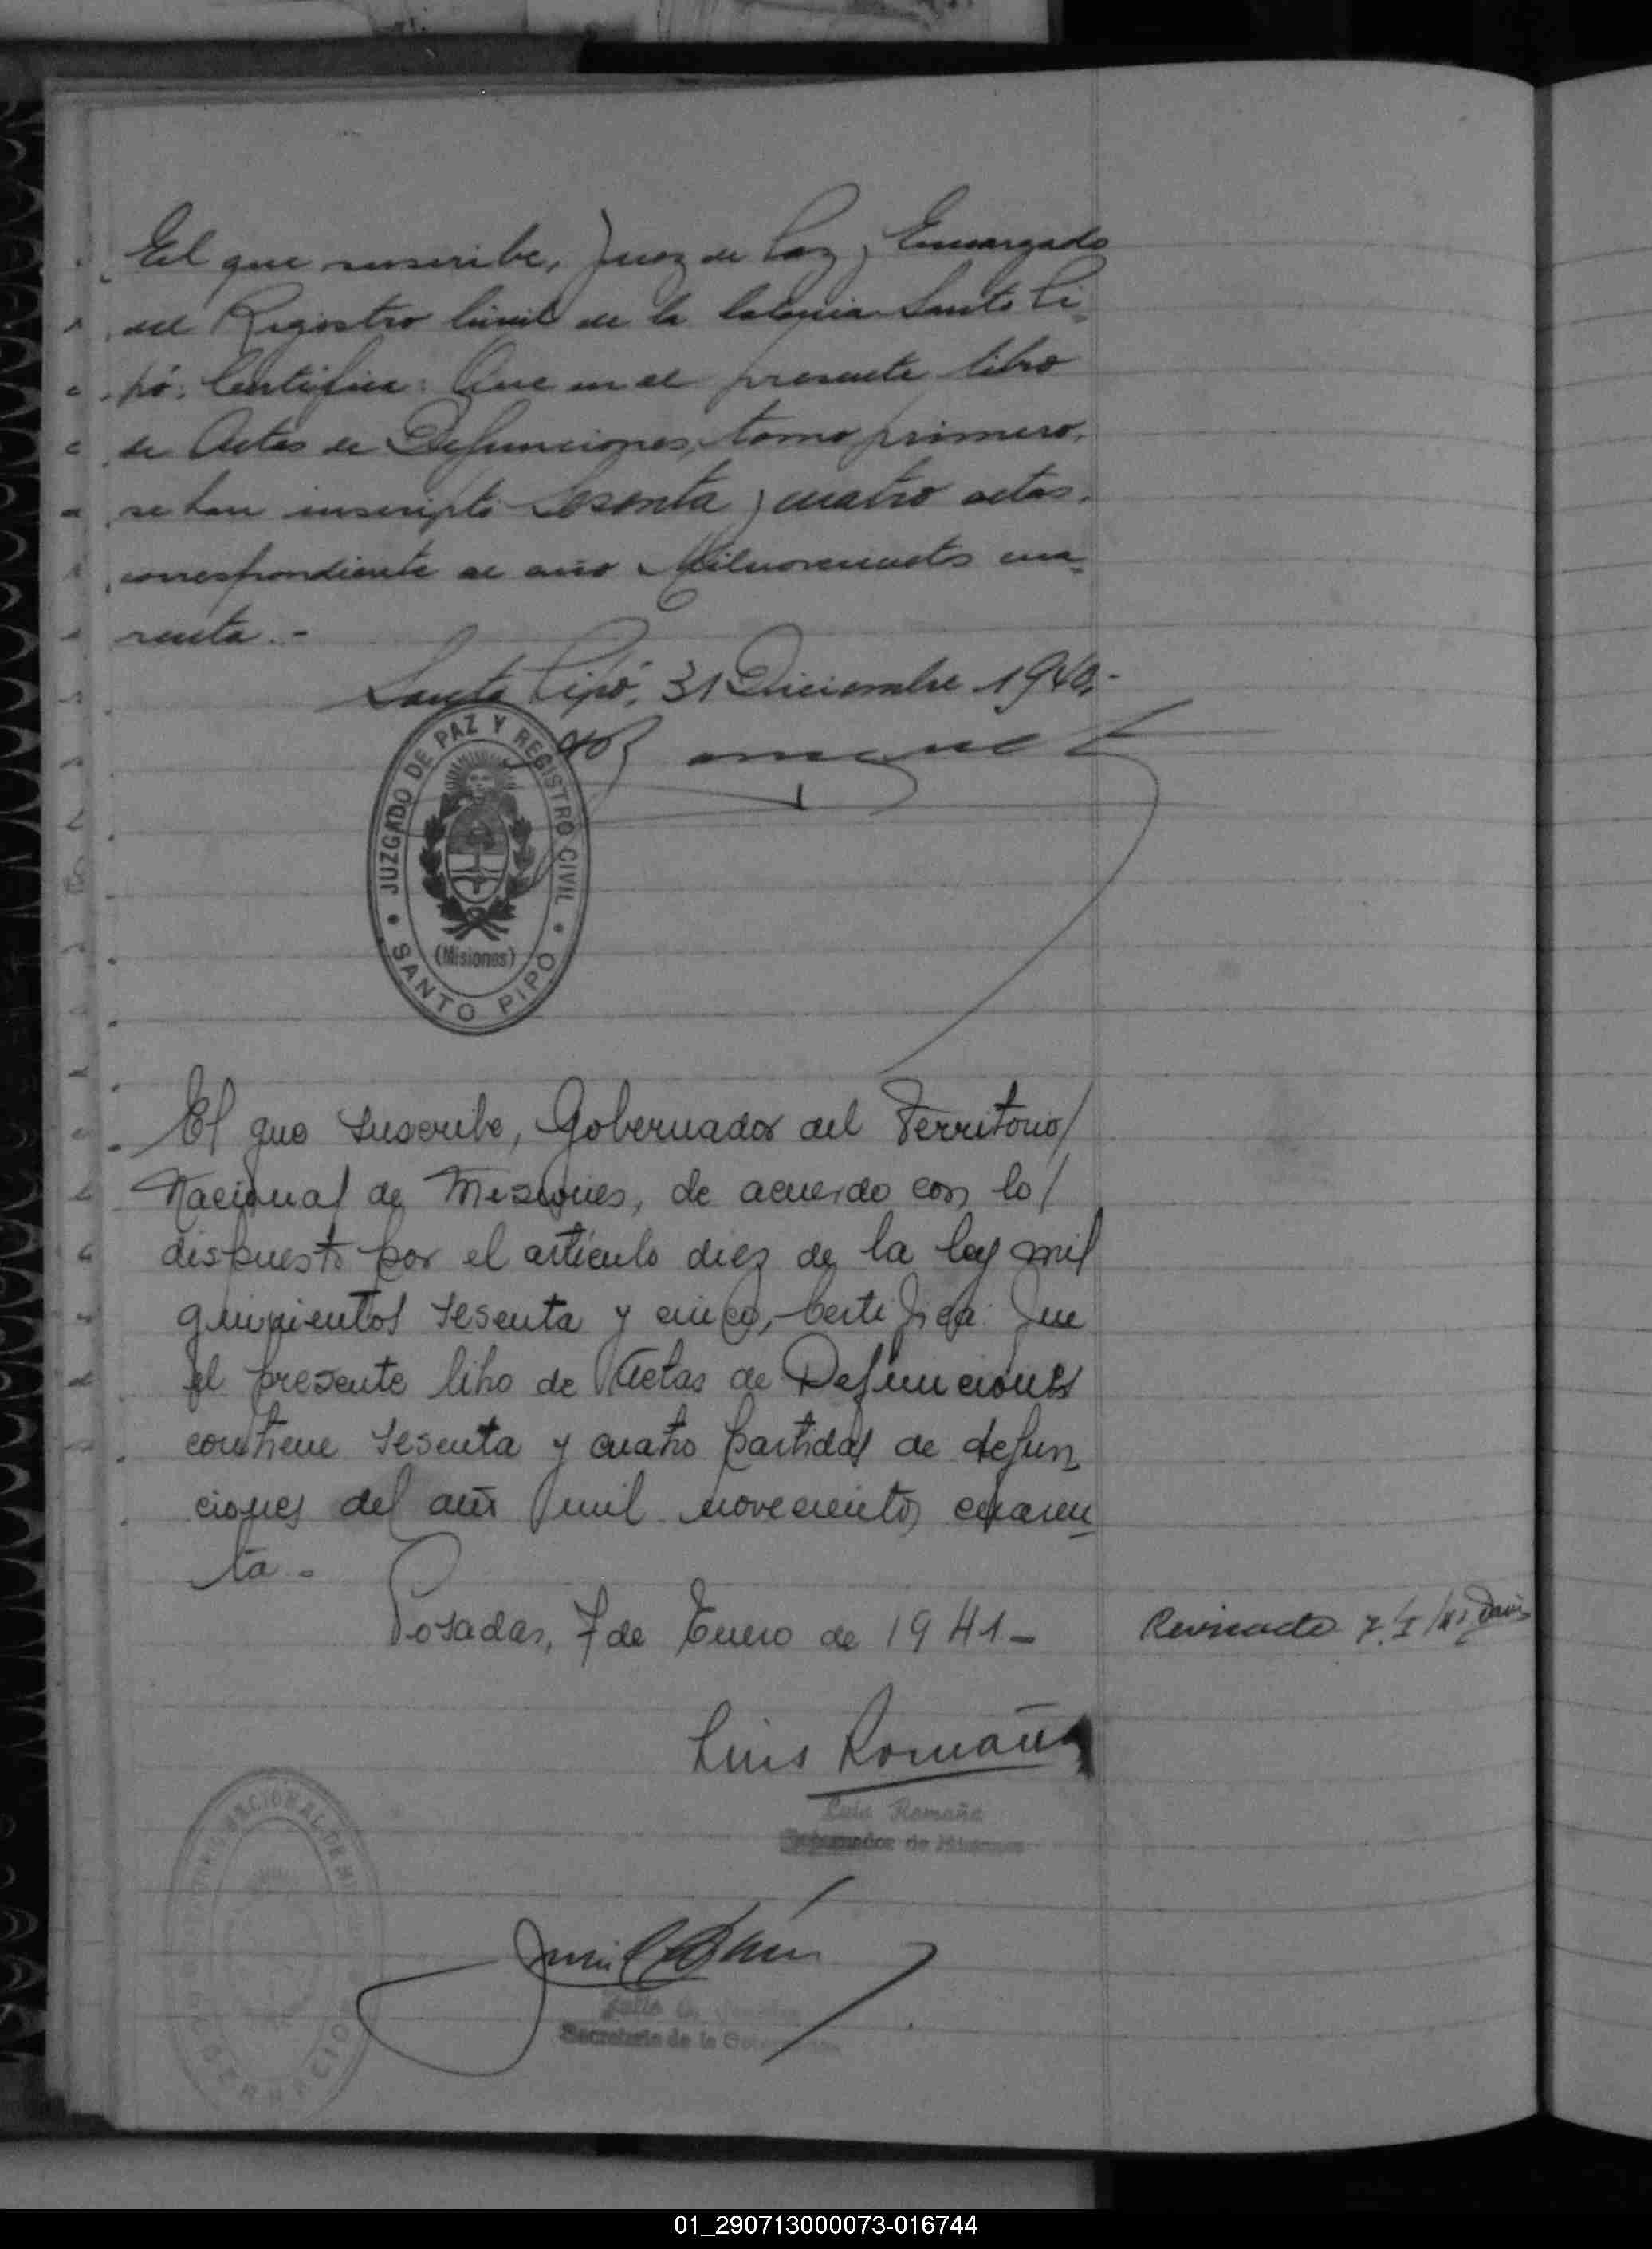 El que suscribe, Juez de Paz y Encargado
del Registro Civil de la Colonia Santo Pi-
pó; Certifica: Que en el presente libro
de Actas de Defunciones, tomo primero,
se han inscripto sesenta y cuatro actas,
correspondiente al año Milnovecientos cua-
renta.-
Santo Pipó, 31 Diciembre 1940.-
JUZGADO DE PAZ Y REGISTRO CIVIL
(Misiones)
SANTO PIPO
El que suscribe, Gobernador del Territorio
Nacional de Misiones, de acuerdo con lo
dispuesto por el artículo diez de la ley mil
quinientos sesenta y cinco, Certifica: Que
el presente libro de Actas de Defunciones
contiene sesenta y cuatro partidas de defun
ciones del año mil novecientos cuaren-
ta.-
Posadas, 7 de Enero de 1941-
Revisado 7/I/41
Luis Romaña
Luis Romaña
Gobernador de Misiones
Secretario de la
GOBERNACION
01_290713000073-016744